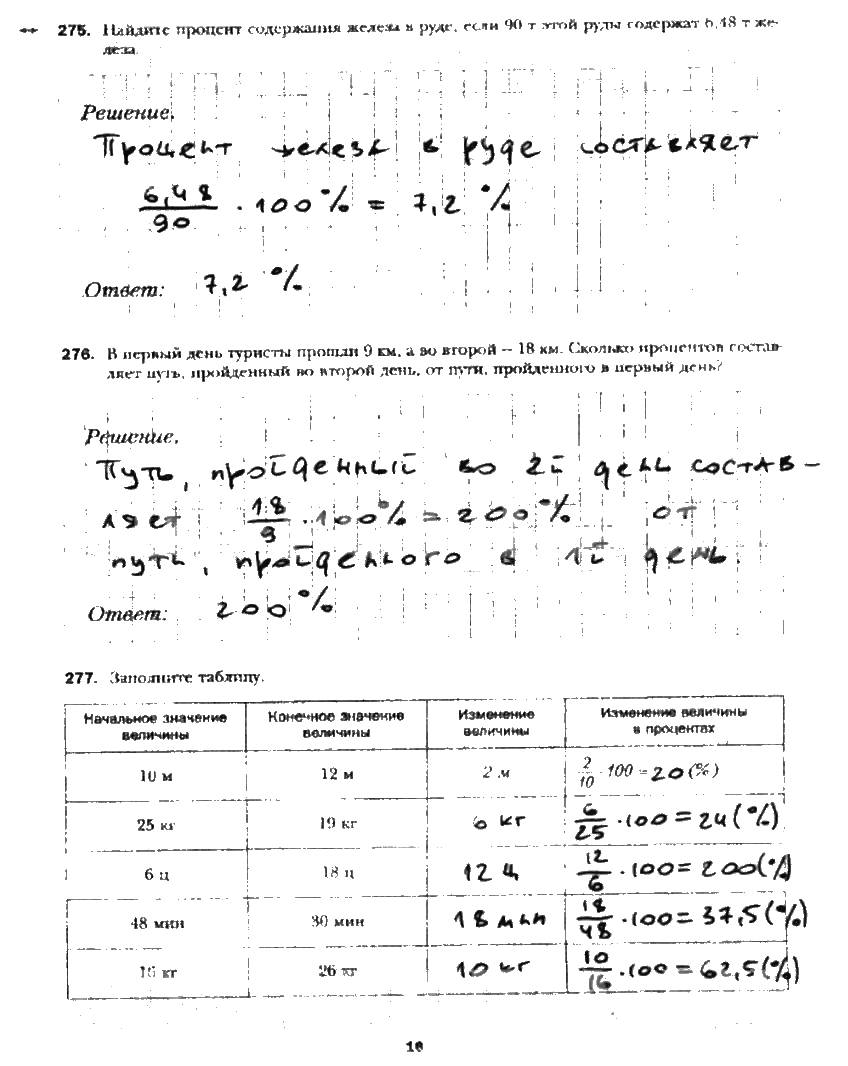 275. Найдите процент содержания железа в руде, если 90 т этой руды содержат 6,48 т же-
леза.
Решение.
Процент железа в руде составляет
6,48/90 · 100 % = 7,2 %
Ответ: 7,2 %
276. В первый день туристы прошли 9 км, а во второй – 18 км. Сколько процентов состав-
ляет путь, пройденный во второй день, от пути, пройденного в первый день?
Решение.
Путь, пройденный во 2й день состав-
ляет 18/9 · 100% = 200% от
пути, пройденного в 1й день.
Ответ: 200 %
277. Заполните таблицу.
Начальное значение величины | Конечное значение величины | Изменение величины | Изменение величины в процентах
10 м | 12 м | 2 м | 2/10 · 100 = 20 (%)
25 кг | 19 кг | 6 кг | 6/25 · 100 = 24 (%)
6 ц | 18 ц | 12 ц | 12/6 · 100 = 200 (%)
48 мин | 30 мин | 18 мин | 18/48 · 100 = 37,5 (%)
16 кг | 26 кг | 10 кг | 10/16 · 100 = 62,5 (%)